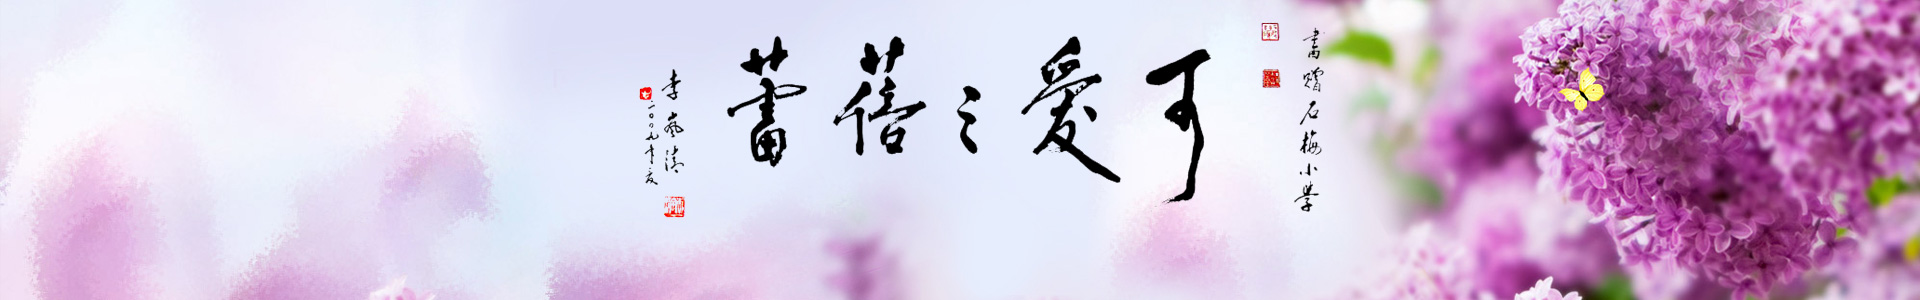 書贈石梅小學
可愛之蓓蕾
李嵐清
二〇〇九年夏